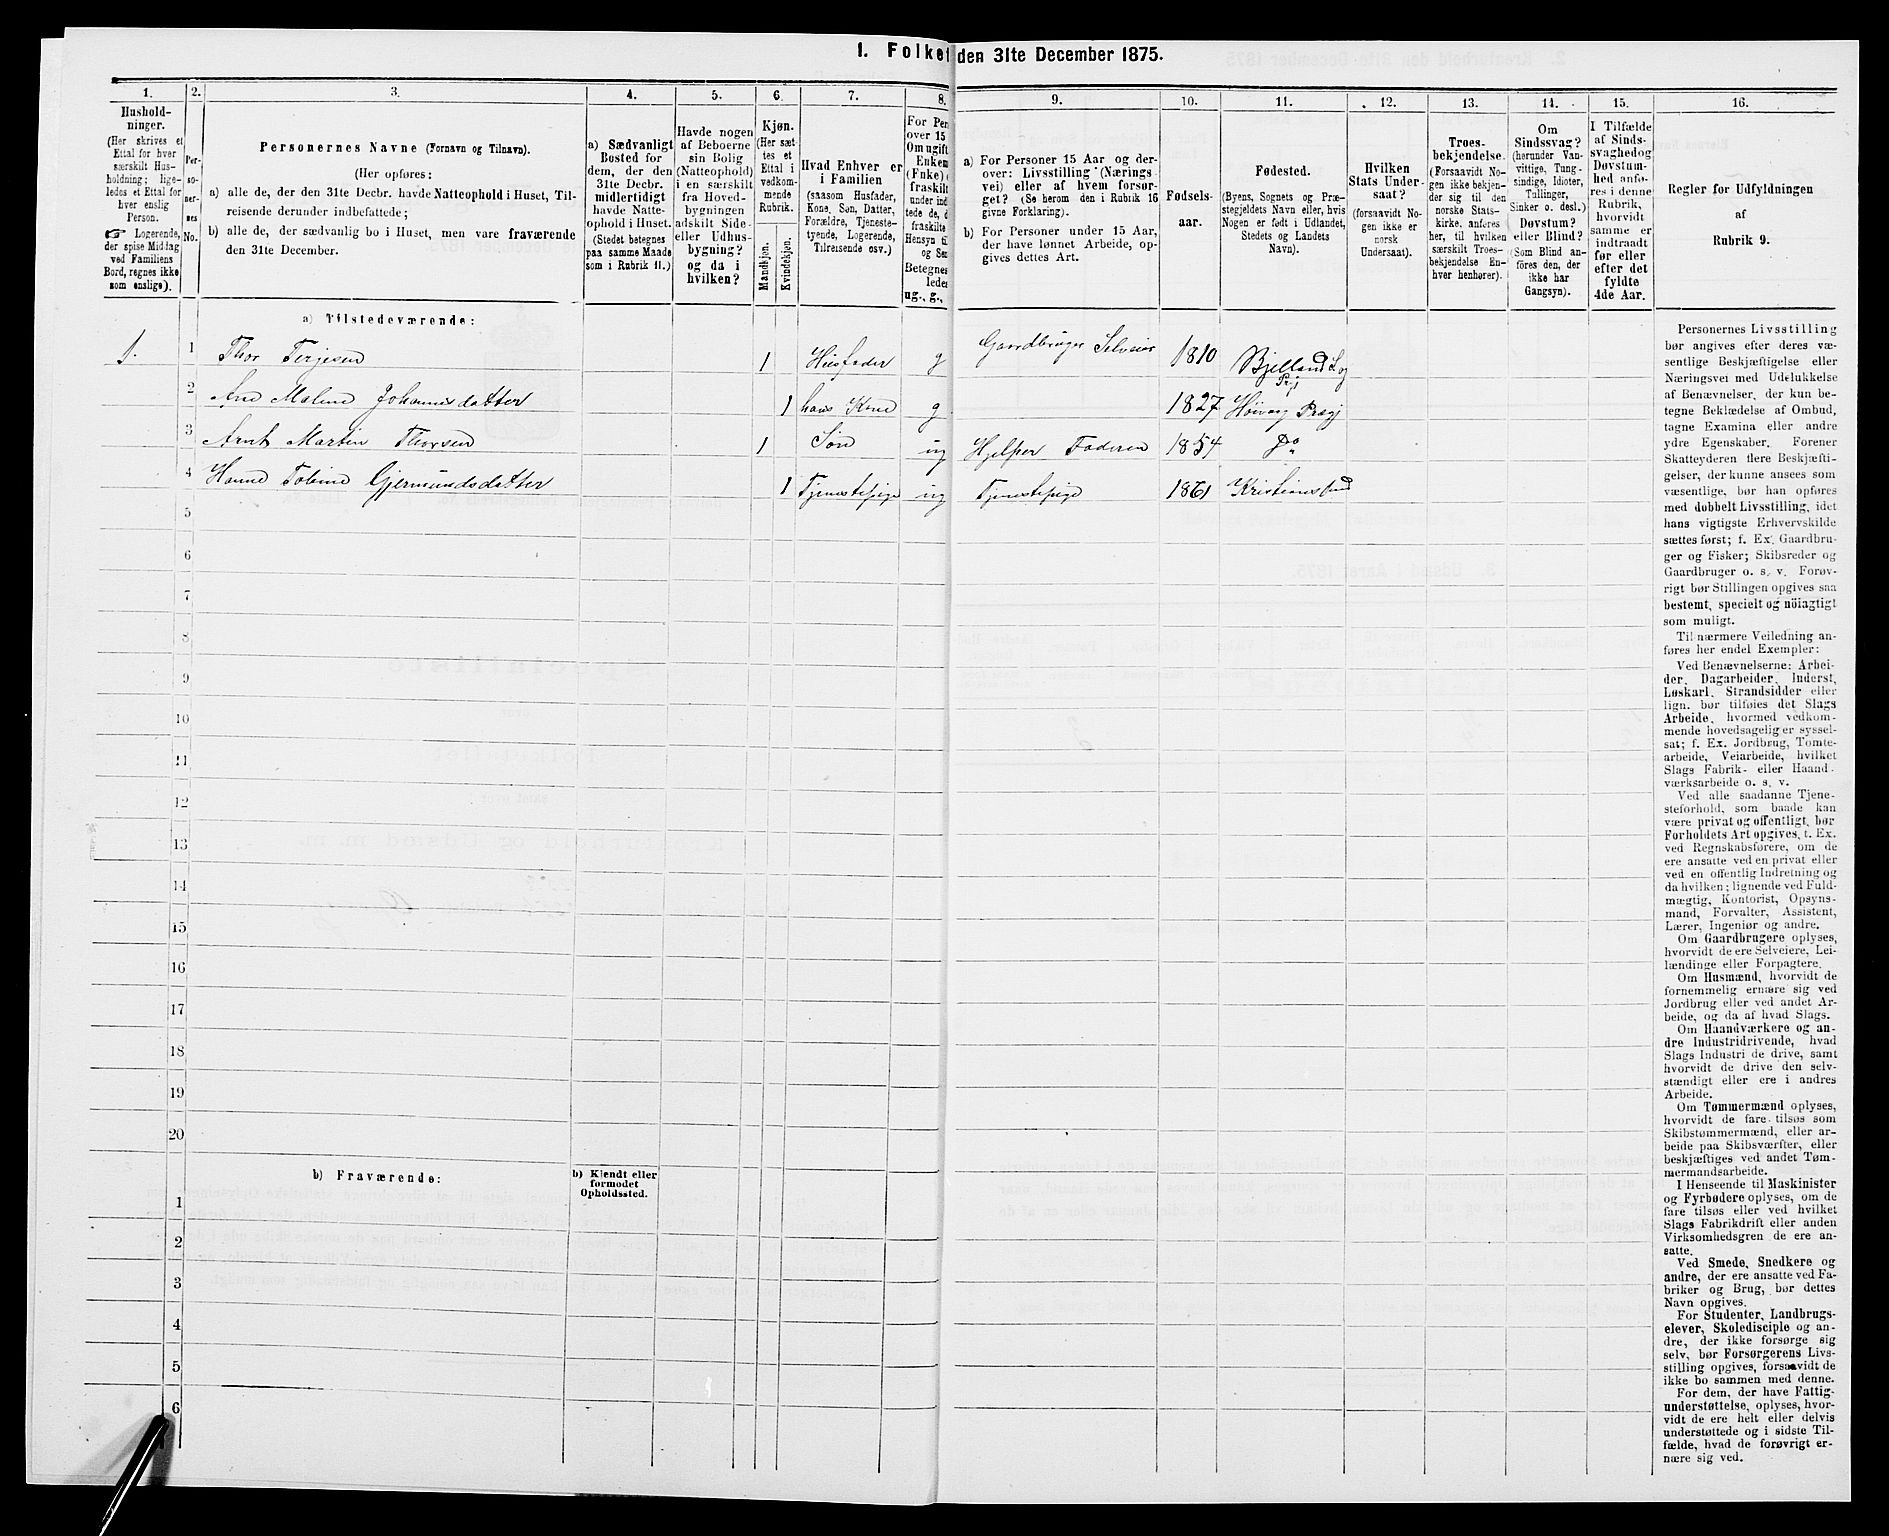 1. Folket den 31te December 1875.
1. 2. 3. 4. 5. 6. 7. 8. 9. 10. 11. 12. 13. 14. 15. 16.
Hushold-
ninger.
(Her skrives et
Ettal for hver
særskilt Hus-
holdning; lige-
ledes et Ettal for
hver enslig
Person.
☞ Logerende,
der spise Middag
ved Familiens
Bord, regnes ikke
som enslige).
Per-
so-
ner-
nes
No.
Personernes Navne (Fornavn og Tilnavn).
(Her opføres:
a) alle de, der den 31te Decbr. havde Natteophold i Huset, Til-
reisende derunder indbefattede;
b) alle de, der sædvanlig bo i Huset, men vare fraværende
den 31te December.
a) Sædvanligt
Bosted for
dem, der den
31te Decbr.
midlertidigt
havde Natte-
ophold i Huset.
(Stedet betegnes
paa samme Maade
som i Rubrik 11.)
Havde nogen
af Beboerne
sin Bolig
(Natteophold)
i en særskilt
fra Hoved-
bygningen
adskilt Side-
eller Udhus-
bygning?
og da i
hvilken?
Kjøn.
(Her sæt-
tes et
Ettal i
vedkom-
mende
Rubrik.
Mandkjøn.
Kvindekjøn.
Hvad Enhver er
i Familien
(saasom Husfader,
Kone, Søn, Datter,
Forældre, Tjeneste-
tyende, Logerende,
Tilreisende osv.)
For Per
over 15
Om ugift
Enkem
(Fnke)
fraskilt
under ind
tede de, d
fraskilte
Hensyn til
og Se
Betegnes
ledes
ug., g.,
a) For Personer 15 Aar og der-
over: Livsstilling (Nærings-
vei) eller af hvem forsør-
get? (Se herom den i Rubrik 16
givne Forklaring).
b) For Personer under 15 Aar,
der have lønnet Arbeide, op-
gives dettes Art.
Fødsels-
aar.
Fødested.
(Byens, Sognets og Præ-
stegjeldets Navn eller, hvis
Nogen er født i Udlandet,
Stedets og Landets
Navn).
Hvilken
Stats Under-
saat?
(forsaavidt No-
gen ikke er
norsk
Undersaat).
Troes-
bekjendelse.
(Forsaavidt No-
gen ikke bekjen-
der sig til den
norske Stats-
kirke, anføres
her, til hvilken
særskilt Troes-
bekjendelse En-
hver henhører).
Om
Sindssvag?
(herunder Van-
vittige, Tung-
sindige, Idioter,
Tullinger,
Sinker o. desl.)
Døvstum?
eller Blind?
(Som Blind an-
føres den, der
ikke har
Gangsyn).
I Tilfælde
af Sinds-
svaghed og
Døvstum-
hed anfø-
res i denne
Rubrik,
hvorvidt
samme er
indtraadt
før eller
efter det
fyldte
4de Aar.
Regler for Udfyldningen
af
Rubrik 9.
a) Tilstedeværende:
1. 1 Thor Terjesen 1 Husfader g Gaardbruger Selveier 1810 Bjelland S. og Pgj
2 Ane Malene Johannesdatter 1 hans Kone g 1827 Høivaag Prægj
3 Arnt Martin Thorsen 1 Søn ug Hjelper Faderen 1854 Do
4 Hanne Tobine Gjermundsdatter 1 Tjenestepige ug Tjenestepige 1861 Kristianssand
5
6
7
8
9
10
11
12
13
14
15
16
17
18
19
20
b) Fraværende:
b) Kjendt eller
formodet
Opholdssted.
1
2
3
4
5
6
Personernes Livsstilling
bør angives efter deres væ-
sentlige Beskjæftigelse eller
Næringsvei med Udelukkelse
af Benævnelser, der kun be-
tegne Beklædelse af Ombud,
tagne Examina eller andre
ydre Egenskaber. Forener
Skatteyderen flere Beskjæfti-
gelser, der kunne ansees som
væsentlige, bør han opføres
med dobbelt Livsstilling, idet
hans vigtigste Erhvervskilde
sættes først; f. Ex. Gaardbru-
ger og Fisker; Skibsreder og
Gaardbruger o. s. v. Forøv-
rigt bør Stillingen opgives saa
bestemt, specielt og nöiagtigt
som muligt.
Til nærmere Veiledning an-
føres her endel Exempler:
Ved Benævnelserne: Arbei-
der, Dagarbeider, Inderst,
Løskarl, Strandsidder eller
lign. bør tilføies det Slags
Arbeide, hvormed vedkom-
mende hovedsagelig er syssel-
sat; f. Ex. Jordbrug, Tomte-
arbeide, Veiarbeide, hvilket
Slags Fabrik- eller Haand-
værksarbeide o. s. v.
Ved alle saadanne Tjene-
steforhold, som baade kan
være privat og offentligt, bør
Forholdets Art opgives, t. Ex.
ved Regnskabsførere, om de
ere ansatte ved en privat eller
ved en offentlig Indretning og
da hvilken; lignende ved Fuld-
mægtig, Kontorist, Opsyns-
mand, Forvalter, Assistent,
Lærer, Ingeniør og andre.
Om Gaardbrugere oplyses,
hvorvidt de ere Selveiere, Lei-
lændinge eller Forpagtere.
Om Husmænd, hvorvidt de
fornemmelig ernære sig ved
Jordbrug eller ved andet Ar-
beide, og da af hvad Slags.
Om Haandværkere og an-
dre Industridrivende, hvad
Slags Industri de drive, samt
hvorvidt de drive den selv-
stændigt eller ere i andres
Arbeide.
Om Tømmermænd oplyses,
hvorvidt de fare tilsøs som
Skibstømmermænd, eller ar-
beide paa Skibsværfter, eller
beskjæftiges ved andet Tøm-
mermandsarbeide.
I Henseende til Maskinister
og Fyrbødere oplyses, om de
fare tilsøs eller ved hvilket
Slags Fabrikdrift eller anden
Virksomhedsgren de ere an-
satte.
Ved Smede, Snedkere og
andre, der ere ansatte ved Fa-
briker og Brug, bør dettes
Navn opgives.
For Studenter, Landbrugs-
elever, Skoledisciple og an-
dre, der ikke forsørge sig
selv, bør Forsørgerens Livs-
stilling opgives, forsaavidt de
ikke bo sammen med denne.
For dem, der have Fattig-
understøttelse, oplyses, hvor-
vidt de ere helt eller delvis
understøttede og i sidste Til-
fælde, hvad de forøvrigt er-
nære sig ved.